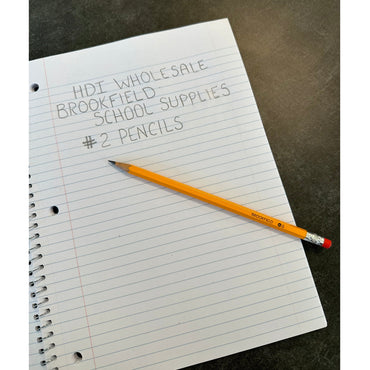 HDI WHOLESALE
BROOKFIELD
SCHOOL SUPPLIES
#2 PENCILS
BROOKFIELD